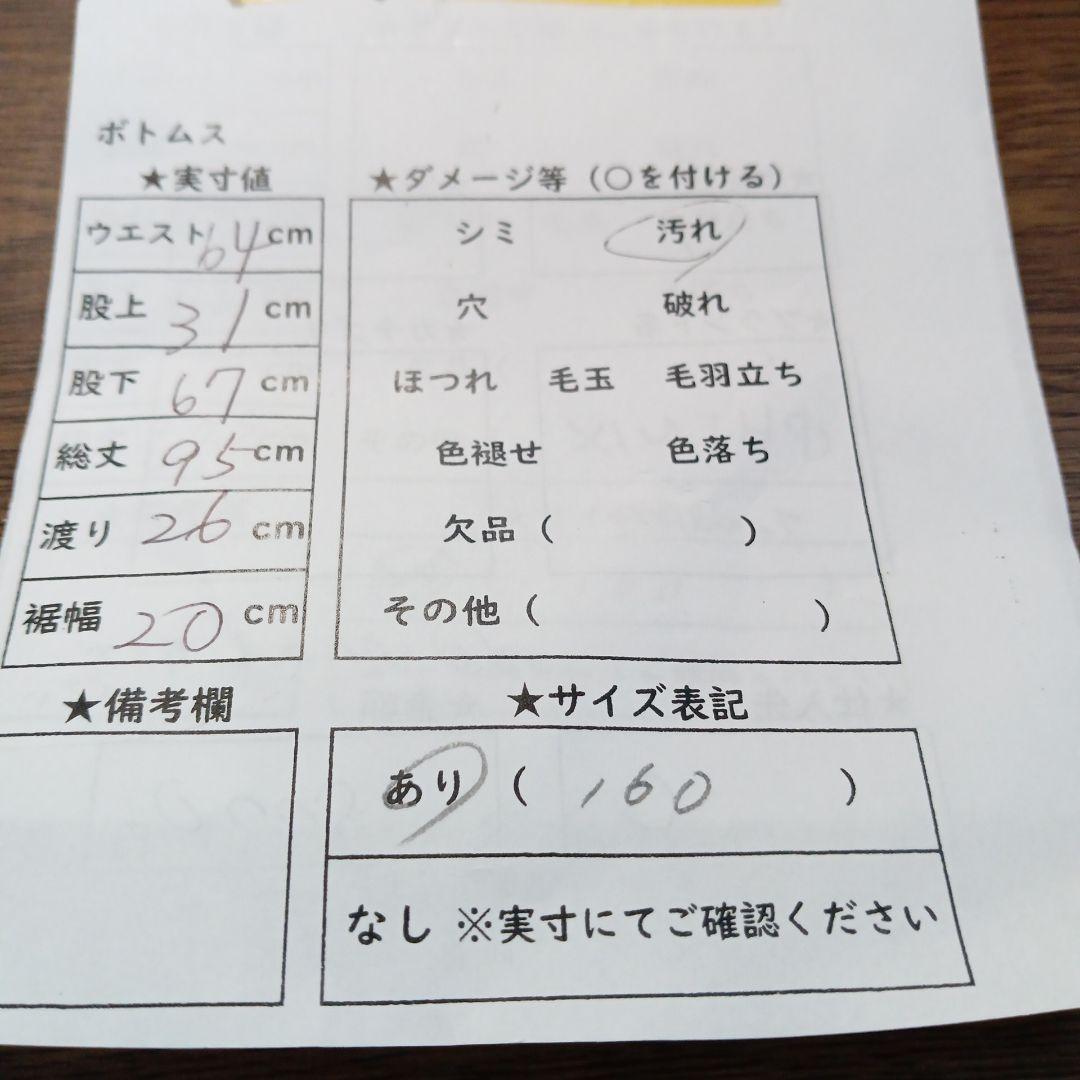 ボトムス
★実寸値
ウエスト 64 cm
股上 31 cm
股下 67 cm
総丈 95 cm
渡り 26 cm
裾幅 20 cm
★ダメージ等（○を付ける）
シミ 汚れ
穴 破れ
ほつれ 毛玉 毛羽立ち
色褪せ 色落ち
欠品（ ）
その他（ ）
★備考欄
★サイズ表記
あり（ 160 ）
なし ※実寸にてご確認ください